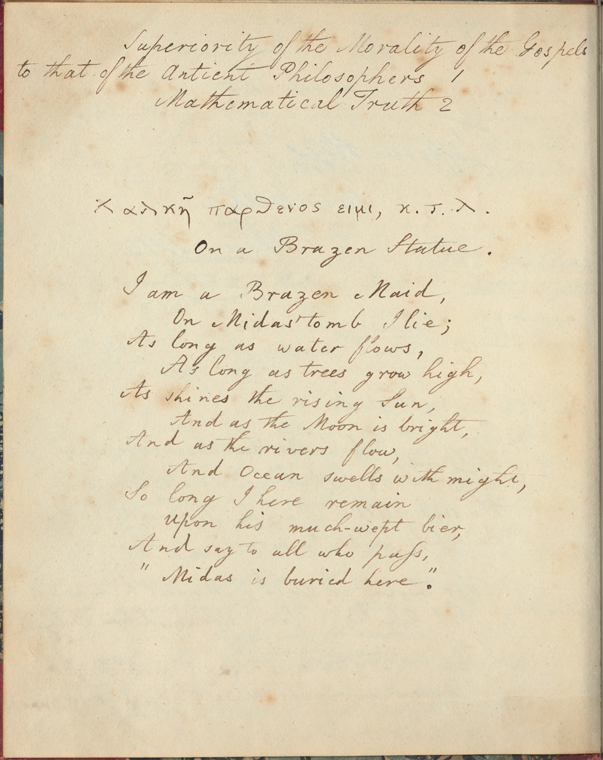 Superiority of the Morality of the Gospels
to that of the Antient Philosophers 1
Mathematical Truth 2
Χαλκῆ παρθενος ειμι, κ.τ.λ.
On a Brazen Statue.
I am a Brazen Maid,
On Midas' tomb I lie;
As long as water flows,
As long as trees grow high,
As shines the rising Sun,
And as the Moon is bright,
And as the rivers flow,
And Ocean swells with might,
So long I here remain
Upon his much-wept bier,
And say to all who paſs,
"Midas is buried here".